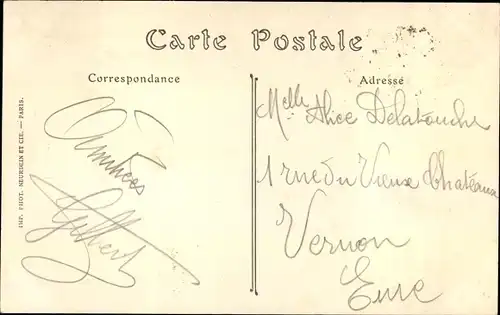 Carte Postale
Correspondance
Adresse
IMP. PHOT. NEURDEIN ET CIE. — PARIS.
Amitiés
Gilbert
Melle Alice Delatouche
1 rue du Vieux Château
Vernon
Eure